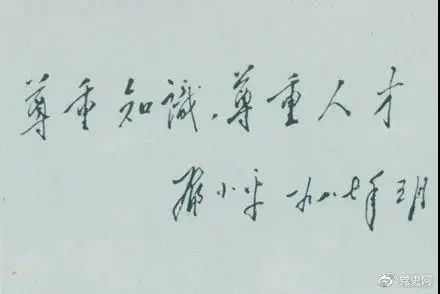 尊重知識,尊重人才
邓小平 一九八七年三月
党史网